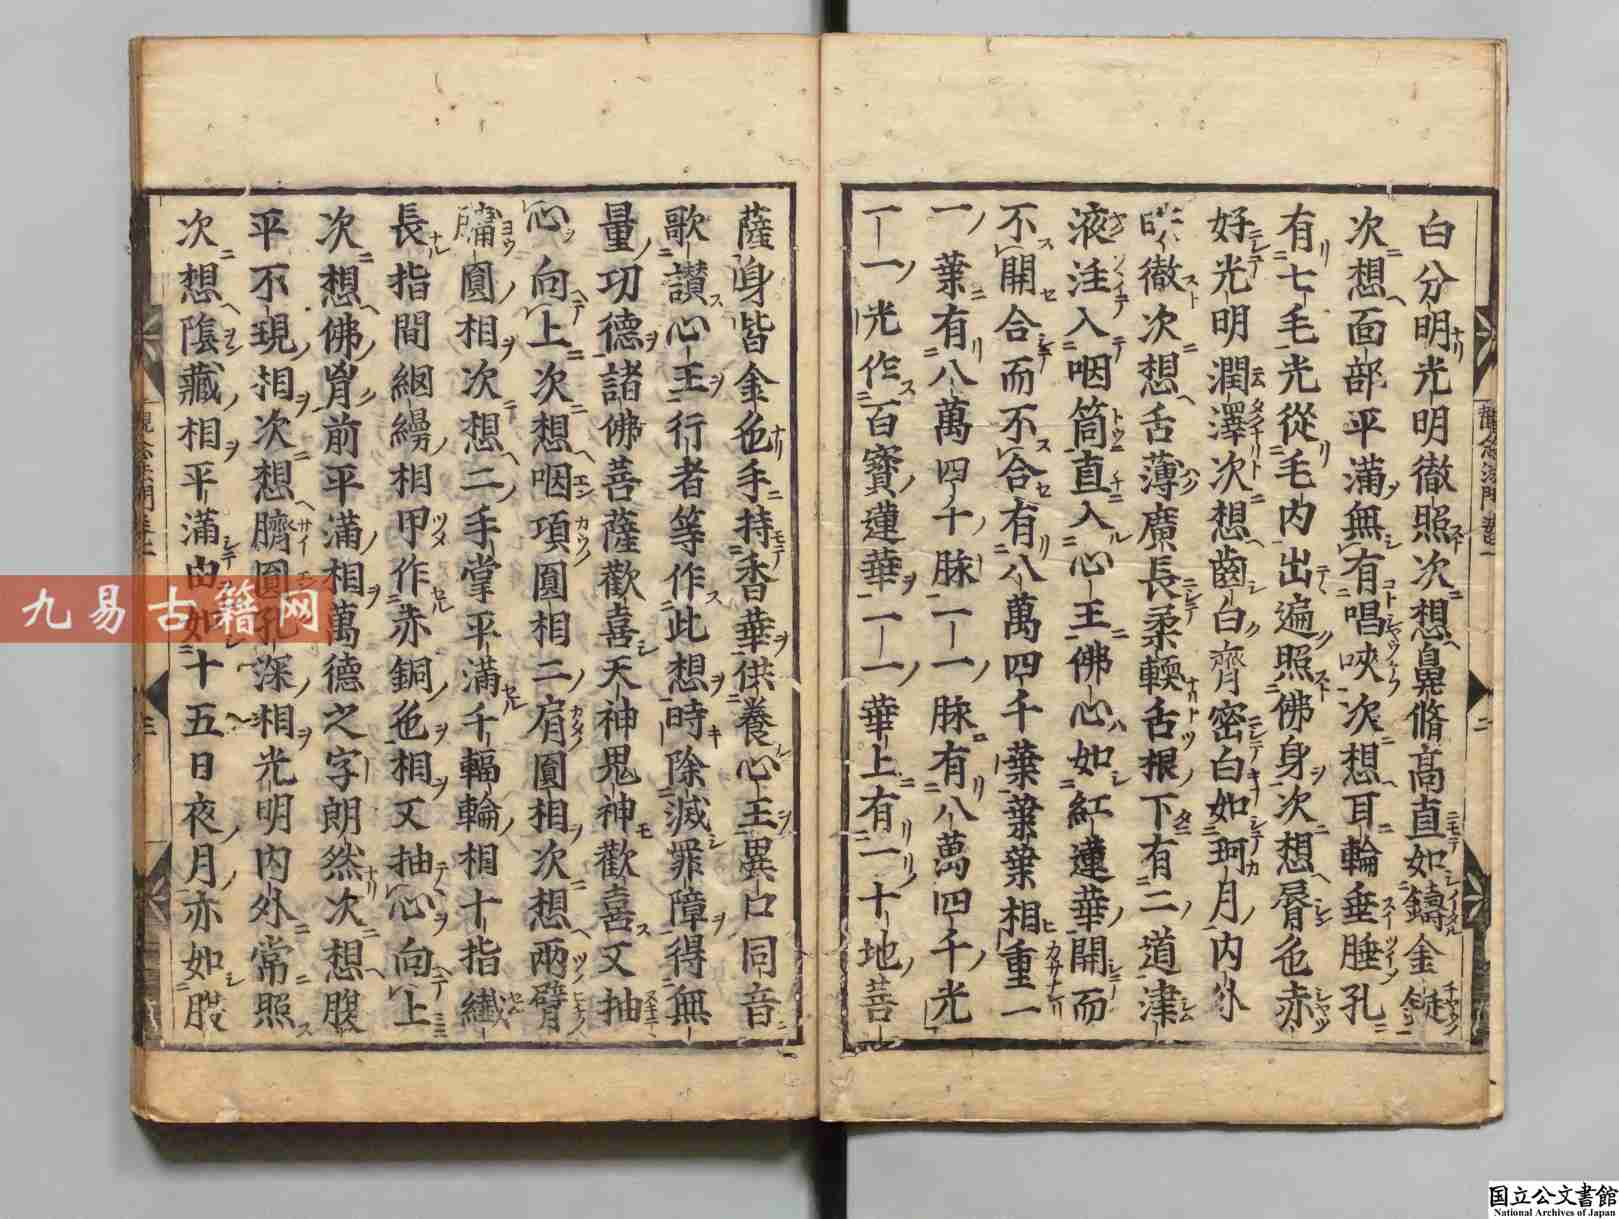 白分明光明徹照次想鼻脩高直如鑄金鋌
次想面部平滿無有喎㖞次想耳輪垂埵孔
有七毛光從毛內出遍照佛身次想脣色赤
好光明潤澤次想齒白齊密白如珂月內外
映徹次想舌薄廣長柔輭舌根下有二道津
液注入咽筒直入心王佛心如紅蓮華開而
不開合而不合有八萬四千葉葉葉相重一
一葉有八萬四千脉一一脉有八萬四千光
一一光作百寶蓮華一一華上有一十地菩
薩身皆金色手持香華供養心王異口同音
歌讃心王行者等作此想時除滅罪障得無
量功德諸佛菩薩歡喜天神鬼神歡喜又抽
心向上次想咽項圓相二肩圓相次想兩臂
𦟛圓相次想二手掌平滿千輻輪相十指纖
長指間網縵相甲作赤銅色相又抽心向上
次想佛胷前平滿相萬德之字朗然次想腹
平不現相次想臍圓孔深相光明內外常照
次想陰藏相平滿由如十五日夜月亦如腹
觀念法門
二
三
九易古籍网
国立公文書館
National Archives of Japan